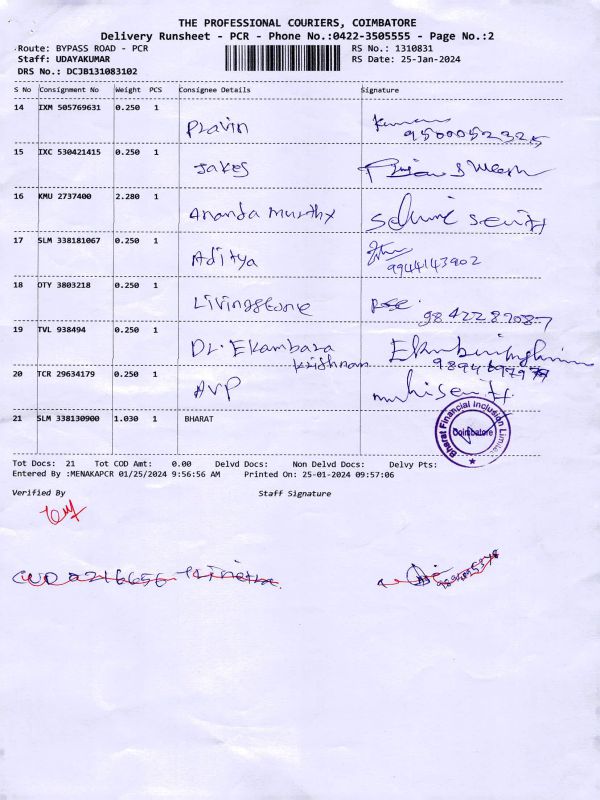 THE PROFESSIONAL COURIERS, COIMBATORE
Delivery Runsheet - PCR - Phone No.:0422-3505555 - Page No.:2
Route: BYPASS ROAD - PCR RS No.: 1310831
Staff: UDAYAKUMAR RS Date: 25-Jan-2024
DRS No.: DCJB131083102
S No Consignment No Weight PCS Consignee Details Signature
14 IXM 505769631 0.250 1
Pravin
9500052325
15 IXC 530421415 0.250 1
Jakes
16 KMU 2737400 2.280 1
Ananda Murthy
17 SLM 338181067 0.250 1
Aditya
9944143902
18 OTY 3803218 0.250 1
Livingstone
9842287087
19 TVL 938494 0.250 1
Dr. Ekambara
Krishnam
20 TCR 29634179 0.250 1
AVP
21 SLM 338130900 1.030 1 BHARAT
Bharat Financial Inclusion Limited
Coimbatore
Tot Docs: 21 Tot COD Amt: 0.00 Delvd Docs: Non Delvd Docs: Delvy Pts:
Entered By :MENAKAPCR 01/25/2024 9:56:56 AM Printed On: 25-01-2024 09:57:06
Verified By Staff Signature